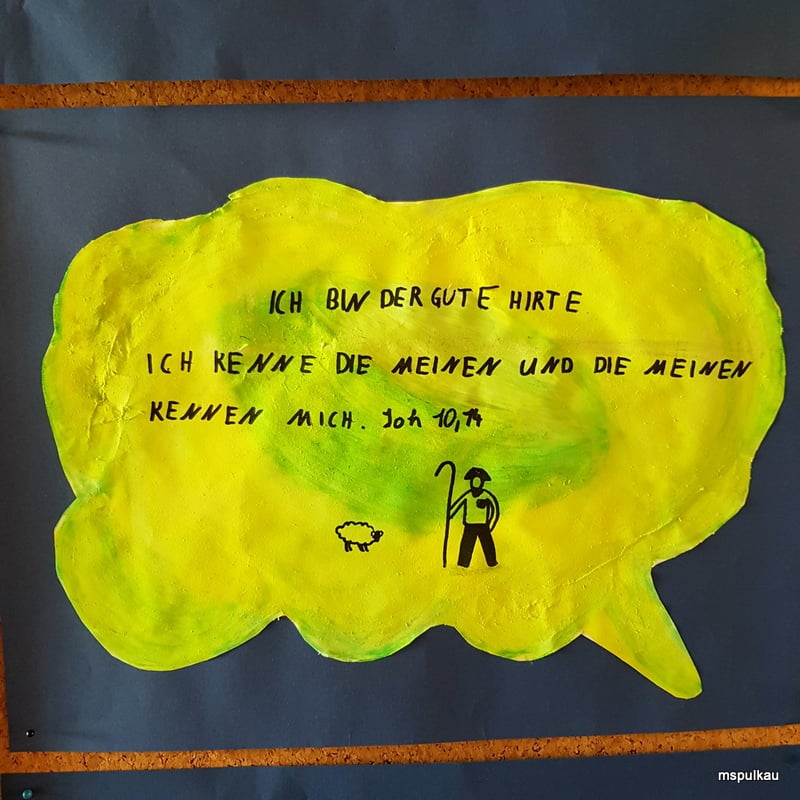 ICH BIN DER GUTE HIRTE
ICH KENNE DIE MEINEN UND DIE MEINEN
KENNEN MICH. Joh 10,14
mspulkau